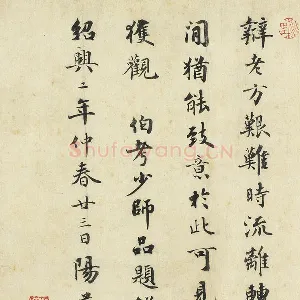 辯老方艱難時流離轉
間猶能鼓意於此可見
獲觀 伯老少師品題
紹興二年仲春廿三日陽
Shufa CN